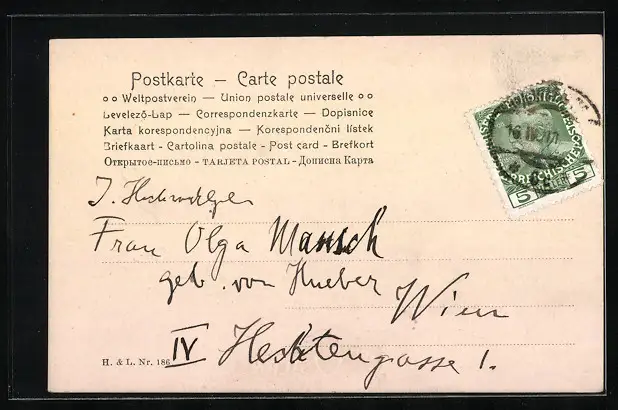 Postkarte — Carte postale
o o Weltpostverein — Union postale universelle o o
Levelező-Lap — Correspondenzkarte — Dopisnice
Karta korespondencyjna — Korespondenční lístek
Briefkaart - Cartolina postale - Post card - Brefkort
Открытое-письмо - TARJETA POSTAL - Дописна Карта
Frau Olga Mansch
geb. von Hueber
Wien
IV Hechtengasse 1.
H. & L. Nr. 186
5 5